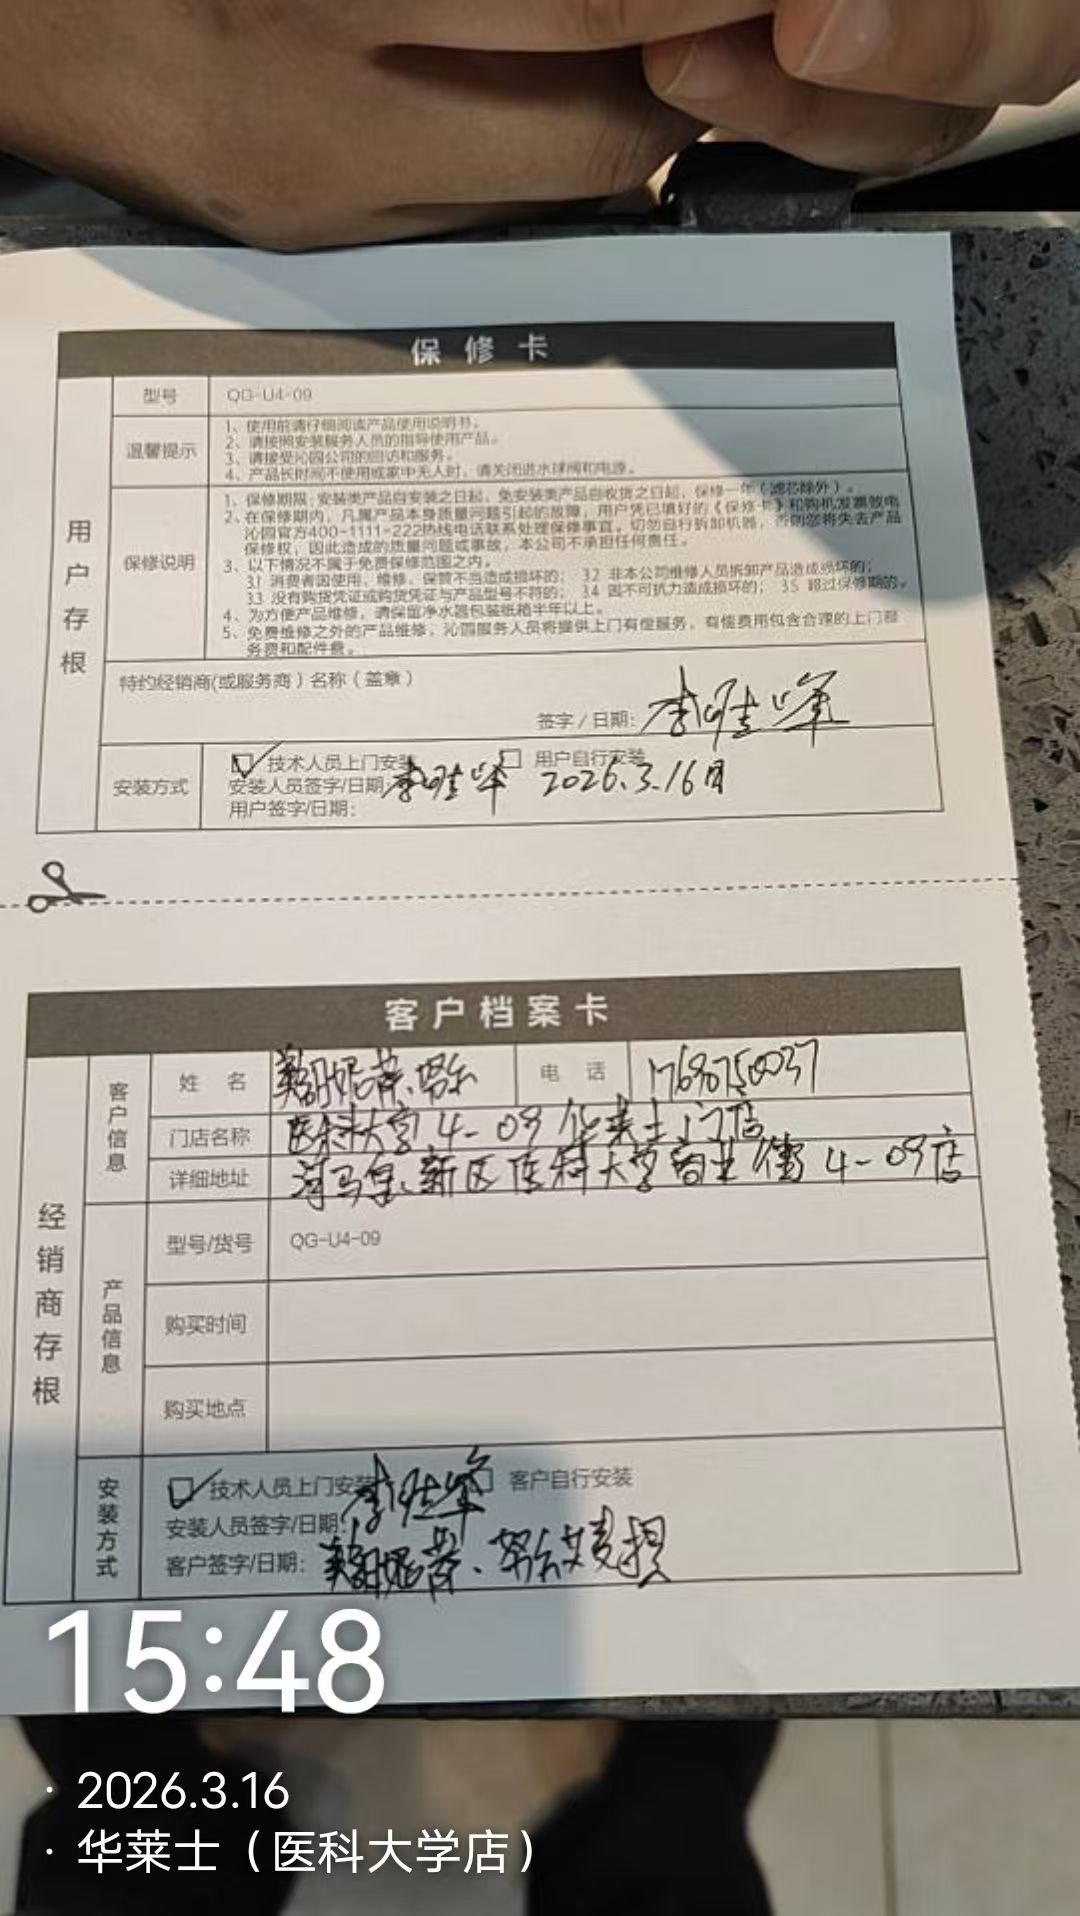 保修卡
用户存根
型号 QG-U4-09
温馨提示
1、使用前请仔细阅读产品使用说明书。
2、请按照安装服务人员的指导使用产品。
3、请接受沁园公司的回访和服务。
4、产品长时间不使用或家中无人时，请关闭进水球阀和电源。
保修说明
1、保修期限：安装类产品自安装之日起，免安装类产品自收货之日起，保修一年（滤芯除外）。
2、在保修期内，凡属产品本身质量问题引起的故障，用户凭已填好的《保修卡》和购机发票致电
沁园官方400-1111-222热线电话联系处理保修事宜。切勿自行拆卸机器，否则您将失去产品
保修权，因此造成的质量问题或事故，本公司不承担任何责任。
3、以下情况不属于免费保修范围之内。
3.1 消费者因使用、维修、保管不当造成损坏的； 3.2 非本公司维修人员拆卸产品造成损坏的；
3.3 没有购货凭证或购货凭证与产品型号不符的； 3.4 因不可抗力造成损坏的； 3.5 超过保修期的。
4、为方便产品维修，请保留净水器包装纸箱半年以上。
5、免费维修之外的产品维修，沁园服务人员将提供上门有偿服务，有偿费用包含合理的上门服
务费和配件费。
特约经销商(或服务商)名称（盖章）
签字/日期：李
安装方式
技术人员上门安装 用户自行安装
安装人员签字/日期 李 2026.3.16日
用户签字/日期：
客户档案卡
经销商存根
客户信息
姓 名 电 话
门店名称 医科大学4-09华莱士门店
详细地址 新区医科大学商业街4-09店
产品信息
型号/货号 QG-U4-09
购买时间
购买地点
安装方式
技术人员上门安装 客户自行安装
安装人员签字/日期：李
客户签字/日期：
15:48
· 2026.3.16
· 华莱士（医科大学店）